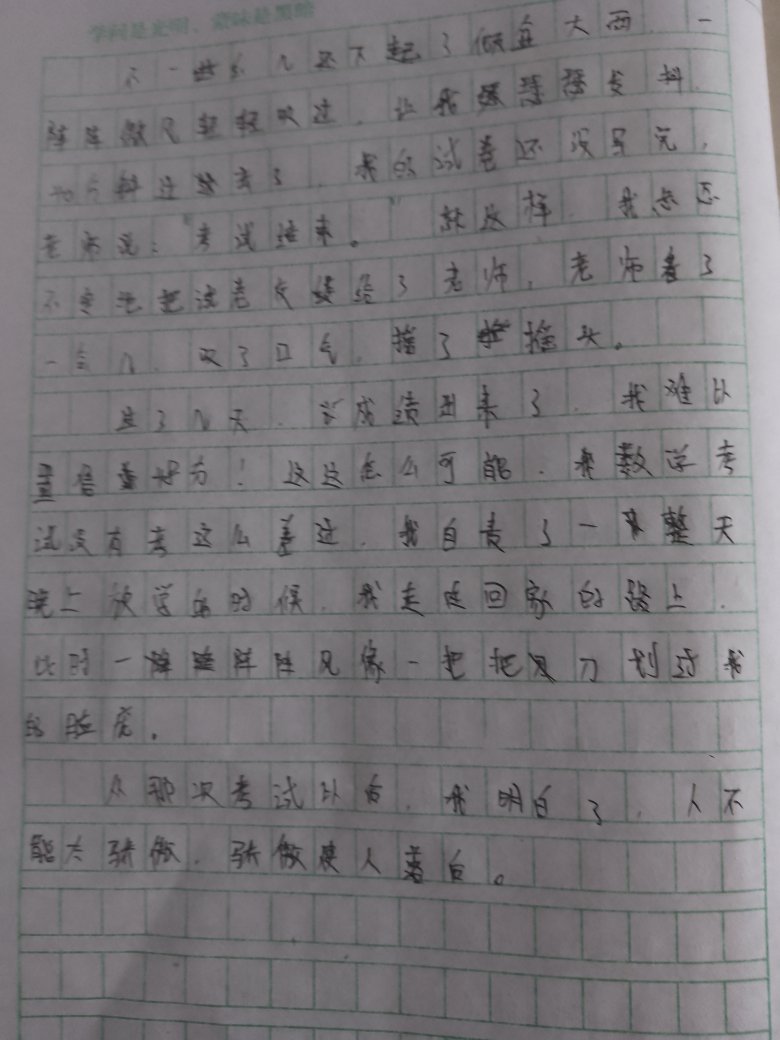 学问是光明、蒙昧是黑暗
不一世儿还下起了倾盆大雨，一
阵阵微风轻轻吹过，让我发抖
去了，我的试卷还没写完，
老师说："考试结束。"就这样，我
不把试卷交给了老师，老师看了
一会儿，叹了口气，摇了摇头。
过了几天，成绩出来了，我难以
！这这怎么可能，我数学考
试没有考这么差过，我自责了一整天
晚上放学的时候，我走回家的路上，
此时一阵阵风像一把把刀划过我
的脸庞。
从那次考试以后，我明白了，人不
能太骄傲，骄傲使人落后。